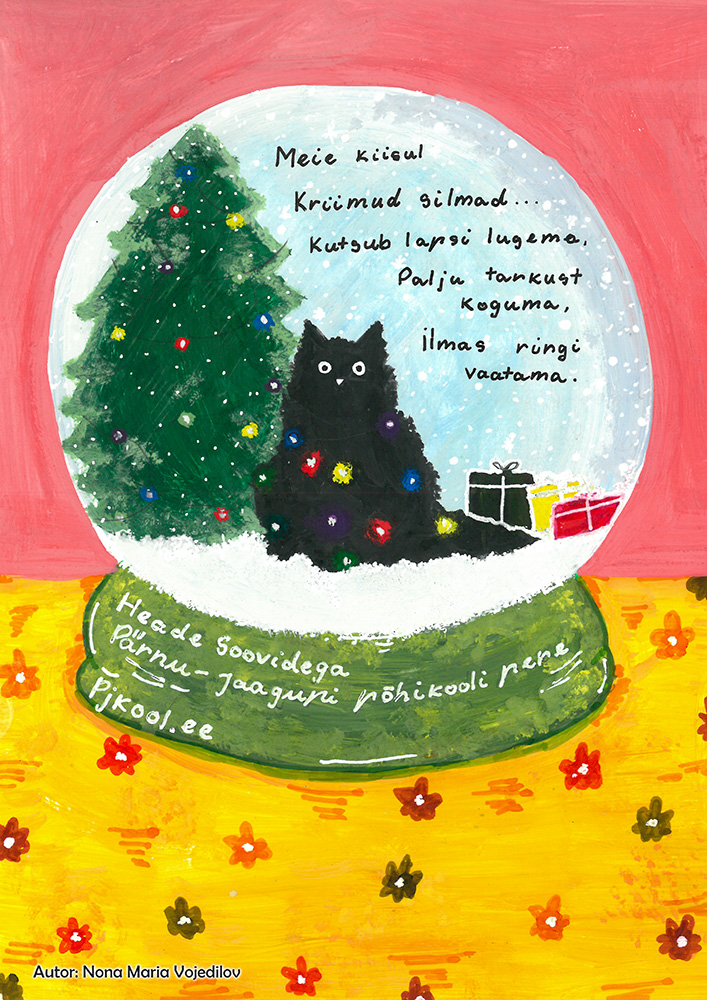 Meie kiisul
Kriimud silmad...
Kutsub lapsi lugema,
Palju tarkust
koguma,
ilmas ringi
vaatama.
Heade Soovidega
Pärnu-Jaagupi põhikooli pere
Pjkool.ee
Autor: Nona Maria Vojedilov